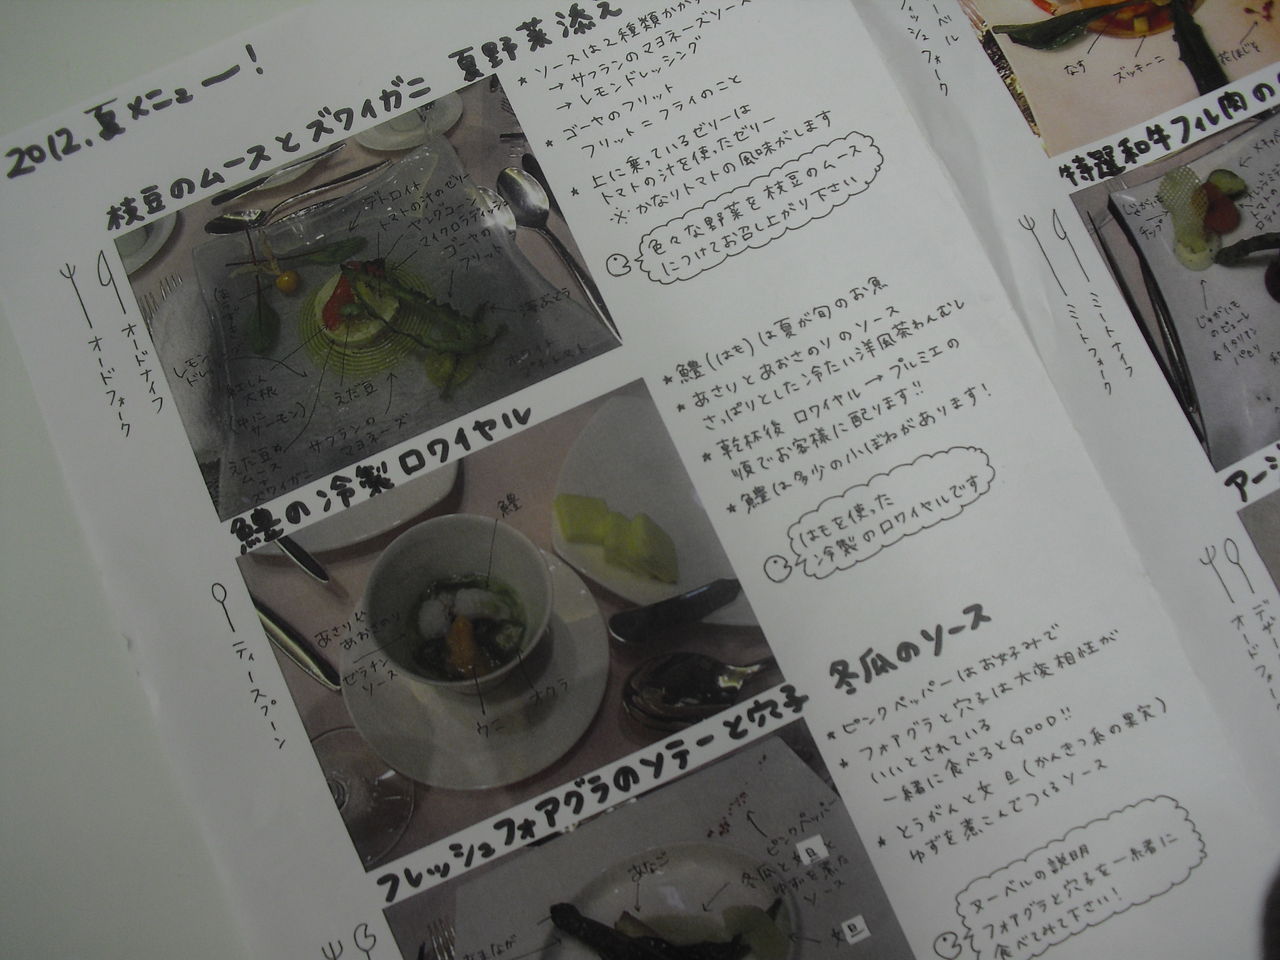 2012.夏メニュー!
枝豆のムースとズワイガニ 夏野菜添え
オードナイフ
オードフォーク
デトロイト
トマトの汁のゼリー
ヤングコーン
マイクロラディッシュ
ゴーヤの
フリット
紅しん
大根
(中に
サーモン)
えだ豆
サフランの
マヨネーズ
えだ豆の
ムース
ズワイガニ
* ソースは2種類
→ サフランのマヨネーズソース
→ レモンドレッシング
* ゴーヤのフリット
フリット=フライのこと
* 上に乗っているゼリーは
トマトの汁を使ったゼリー
※かなりトマトの風味がします
色々な野菜を枝豆のムース
につけてお召し上がり下さい
鱧の冷製ロワイヤル
ティースプーン
鱧
あさりや
あおさのり
ゼラチン
ソース
ウニ
オクラ
* 鱧(はも)は夏が旬のお魚
* あさりとあおさのりのソース
さっぱりとした冷たい洋風茶わんむし
* 乾杯後 ロワイヤル→プルミエの
順でお客様に配ります!!
* 鱧は多少の小ぼねがあります!
はもを使った
冷製のロワイヤルです
フレッシュフォアグラのソテーと穴子 冬瓜のソース
ピンクペッパー
あなご
冬瓜と文旦と
ゆずを煮た
ソース
文旦
* ピンクペッパーはお好みで
* フォアグラと穴子は大変相性が
いいとされている
一緒に食べるとGOOD!!
* とうがんと文旦(かんきつ系の果実)
ゆずを煮こんでつくるソース
ヌーベルの説明
フォアグラと穴子を一緒に
食べてみて下さい!
フィッシュフォーク
なす
ズッキーニ
花ほじそ
特選和牛フィル肉の
ミートナイフ
ミートフォーク
じゃがいも
チップ
じゃがいも
のピューレ
&イタリアン
パセリ
アー
オードフォーク